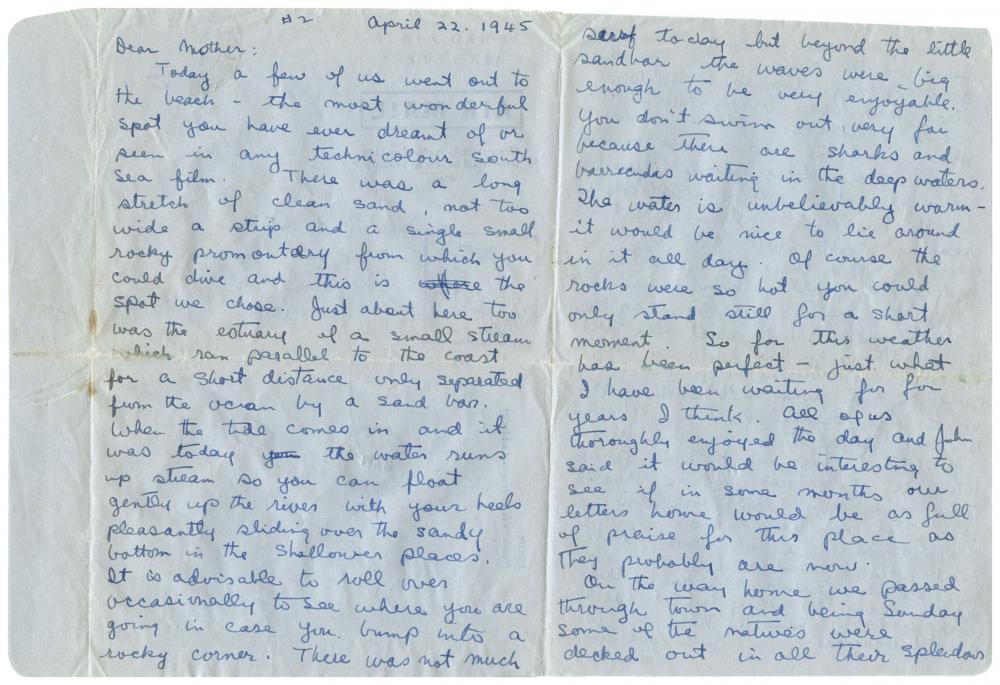 #2 April 22. 1945
Dear Mother:
Today a few of us went out to
the beach - the most wonderful
spot you have ever dreamt of or
seen in any technicolour South
Sea film. There was a long
stretch of clean sand, not too
wide a strip and a single small
rocky promontory from which you
could dive and this is where the
spot we chose. Just about here too
was the estuary of a small stream
which ran parallel to the coast
for a short distance only separated
from the ocean by a sand bar.
When the tide comes in and it
was today you the water runs
up stream so you can float
gently up the river with your heels
pleasantly sliding over the sandy
bottom in the shallower places.
It is advisable to roll over
occasionally to see where you are
going in case you bump into a
rocky corner. There was not much
surf today but beyond the little
sandbar the waves were big
enough to be very enjoyable.
You don't swim out very far
because there are sharks and
barrecudas waiting in the deep waters.
The water is unbelievably warm -
it would be nice to lie around
in it all day. Of course the
rocks were so hot you could
only stand still for a short
moment. So far this weather
has been perfect - just what
I have been waiting for for
years I think. All of us
thoroughly enjoyed the day and John
said it would be interesting to
see if in some months our
letters home would be as full
of praise for this place as
they probably are now.
On the way home we passed
through town and being Sunday
some of the natives were
decked out in all their splendour